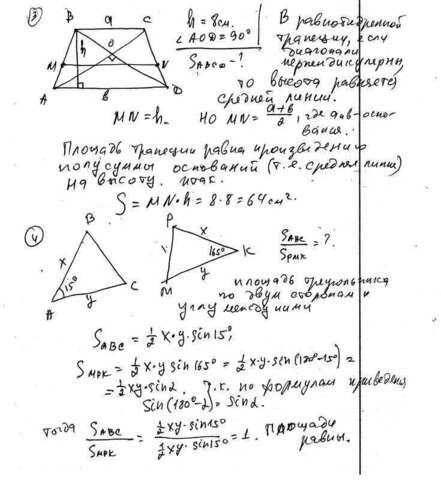 ③
B a C
h
O
M N
A b D
h = 8см.
∠AOD = 90°
S_ABCD - ?
В равнобедренной
трапеции, если
диагонали
перпендикулярны,
то высота равняется
средней линии.
MN = h. но MN = (a+b)/2, где a и b - осно-
вания.
Площадь трапеции равна произведению
полусуммы оснований (т.е. средней линии)
на высоту. итак.
S = MN·h = 8·8 = 64см².
④
B
x
15°
A y C
P
x
165° K
y
M
S_ABC / S_PMK = ?
площадь треугольника
по двум сторонам и
углу между ними
S_ABC = 1/2 x·y·sin15°;
S_MPK = 1/2 x·y sin165° = 1/2 x·y·sin(180°-15°) =
= 1/2 xy·sinα. Т.к. по формулам приведения
sin(180°-α) = sinα.
тогда S_ABC / S_MPK = (1/2 xy sin15°) / (1/2 xy·sin15°) = 1. Площади
равны.